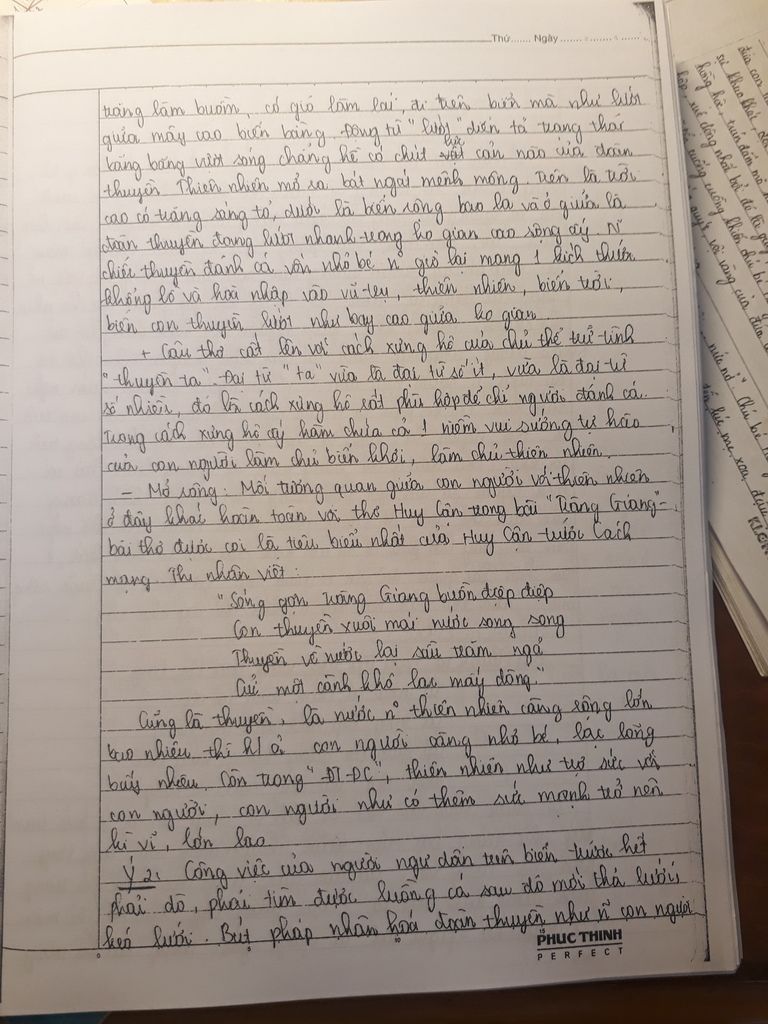 Thứ....... Ngày ....... ....... .......
trăng làm buồm, có gió làm lái, đi trên biển mà như lướt
giữa mây cao biển bằng. Động từ "lướt" diễn tả trạng thái
băng băng vượt sóng chẳng hề có chút lực cản nào của đoàn
thuyền. Thiên nhiên mở ra bát ngát mênh mông. Trên là trời
cao có trăng sáng tỏ, dưới là biển rộng bao la và ở giữa là
đoàn thuyền đang lướt nhanh trong ko gian cao rộng ấy. N~
chiếc thuyền đánh cá vốn nhỏ bé n° giờ lại mang 1 kích thước
khổng lồ và hoà nhập vào vũ trụ, thiên nhiên, biển trời,
biến con thuyền lướt như bay cao giữa ko gian.
+ Câu thơ cất lên với cách xưng hô của chủ thể trữ tình
"thuyền ta". Đại từ "ta" vừa là đại từ số ít, vừa là đại từ
số nhiều, đó là cách xưng hô rất phù hợp để chỉ người đánh cá.
Trong cách xưng hô ấy hàm chứa cả 1 niềm vui sướng tự hào
của con người làm chủ biển khơi, làm chủ thiên nhiên.
- Mở rộng: Mối tương quan giữa con người với thiên nhiên
ở đây khác hoàn toàn với thơ Huy Cận trong bài "Tràng Giang" -
bài thơ được coi là tiêu biểu nhất của Huy Cận trước Cách
mạng. Thi nhân viết:
"Sóng gợn Tràng Giang buồn điệp điệp
Con thuyền xuôi mái nước song song
Thuyền về nước lại sầu trăm ngả
Củi một cành khô lạc mấy dòng."
Cũng là thuyền, là nước n° thiên nhiên càng rộng lớn
bao nhiêu thì h/ả con người càng nhỏ bé, lạc lõng
bấy nhiêu. Còn trong "ĐTĐC", thiên nhiên như trợ sức với
con người, con người như có thêm sức mạnh trở nên
kì vĩ, lớn lao.
Ý 2: Công việc của người ngư dân trên biển trước hết
phải dò, phải tìm được luồng cá sau đó mới thả lưới,
kéo lưới. Bút pháp nhân hoá đoàn thuyền như n~ con người
PHUC THINH
PERFECT